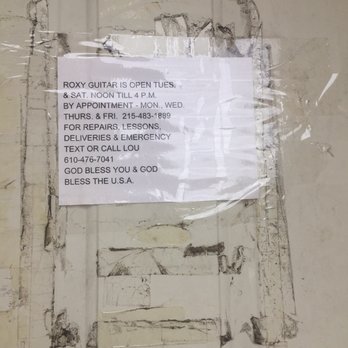 ROXY GUITAR IS OPEN TUES.
& SAT. NOON TILL 4 P.M.
BY APPOINTMENT - MON., WED.
THURS. & FRI. 215-483-1899
FOR REPAIRS, LESSONS,
DELIVERIES & EMERGENCY
TEXT OR CALL LOU
610-476-7041
GOD BLESS YOU & GOD
BLESS THE U.S.A.